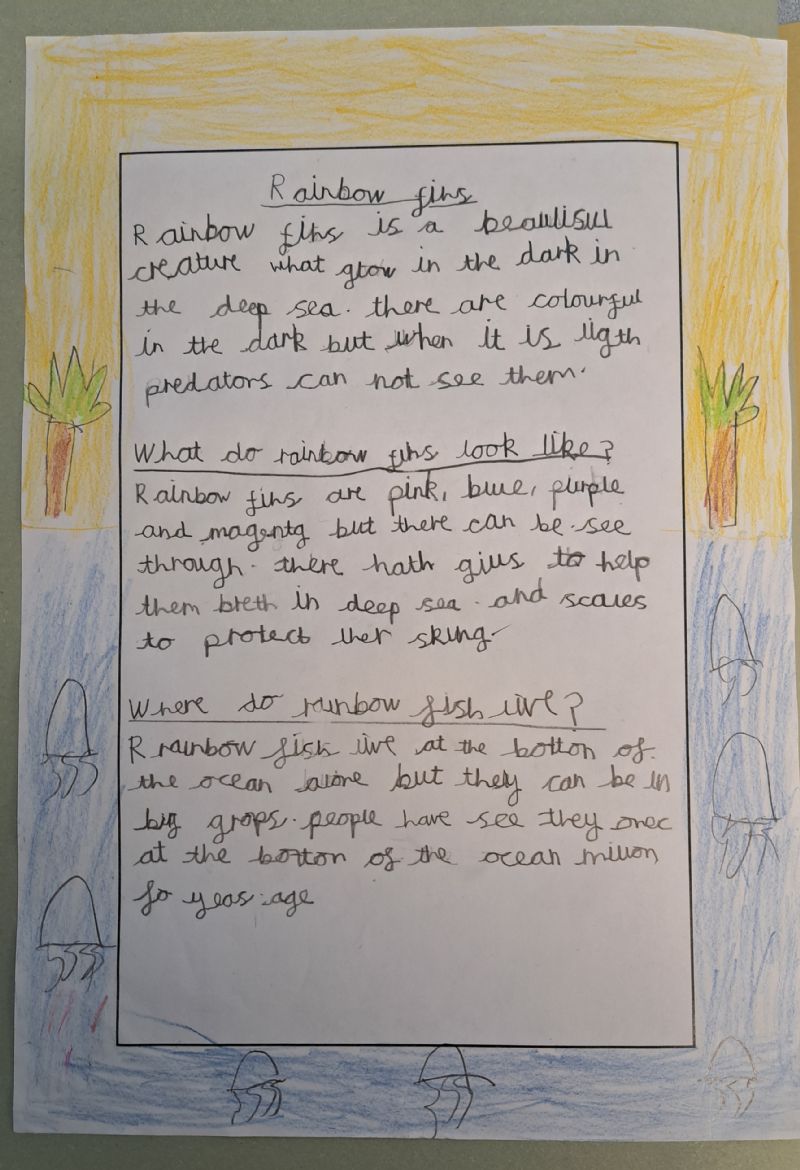 Rainbow fins
Rainbow fins is a beautisul
creature what glow in the dark in
the deep sea. there are colourful
in the dark but when it is ligth
predators can not see them.
What do rainbow fins look like?
Rainbow fins are pink, blue, purple
and magenta but there can be see
through. there hath gills to help
them breth in deep sea. and scales
to protect ther sking.
Where do rainbow fish live?
R rainbow fish live at the botton of
the ocean alone but they can be in
big grops. people have see they onec
at the botton of the ocean million
fo yeas age